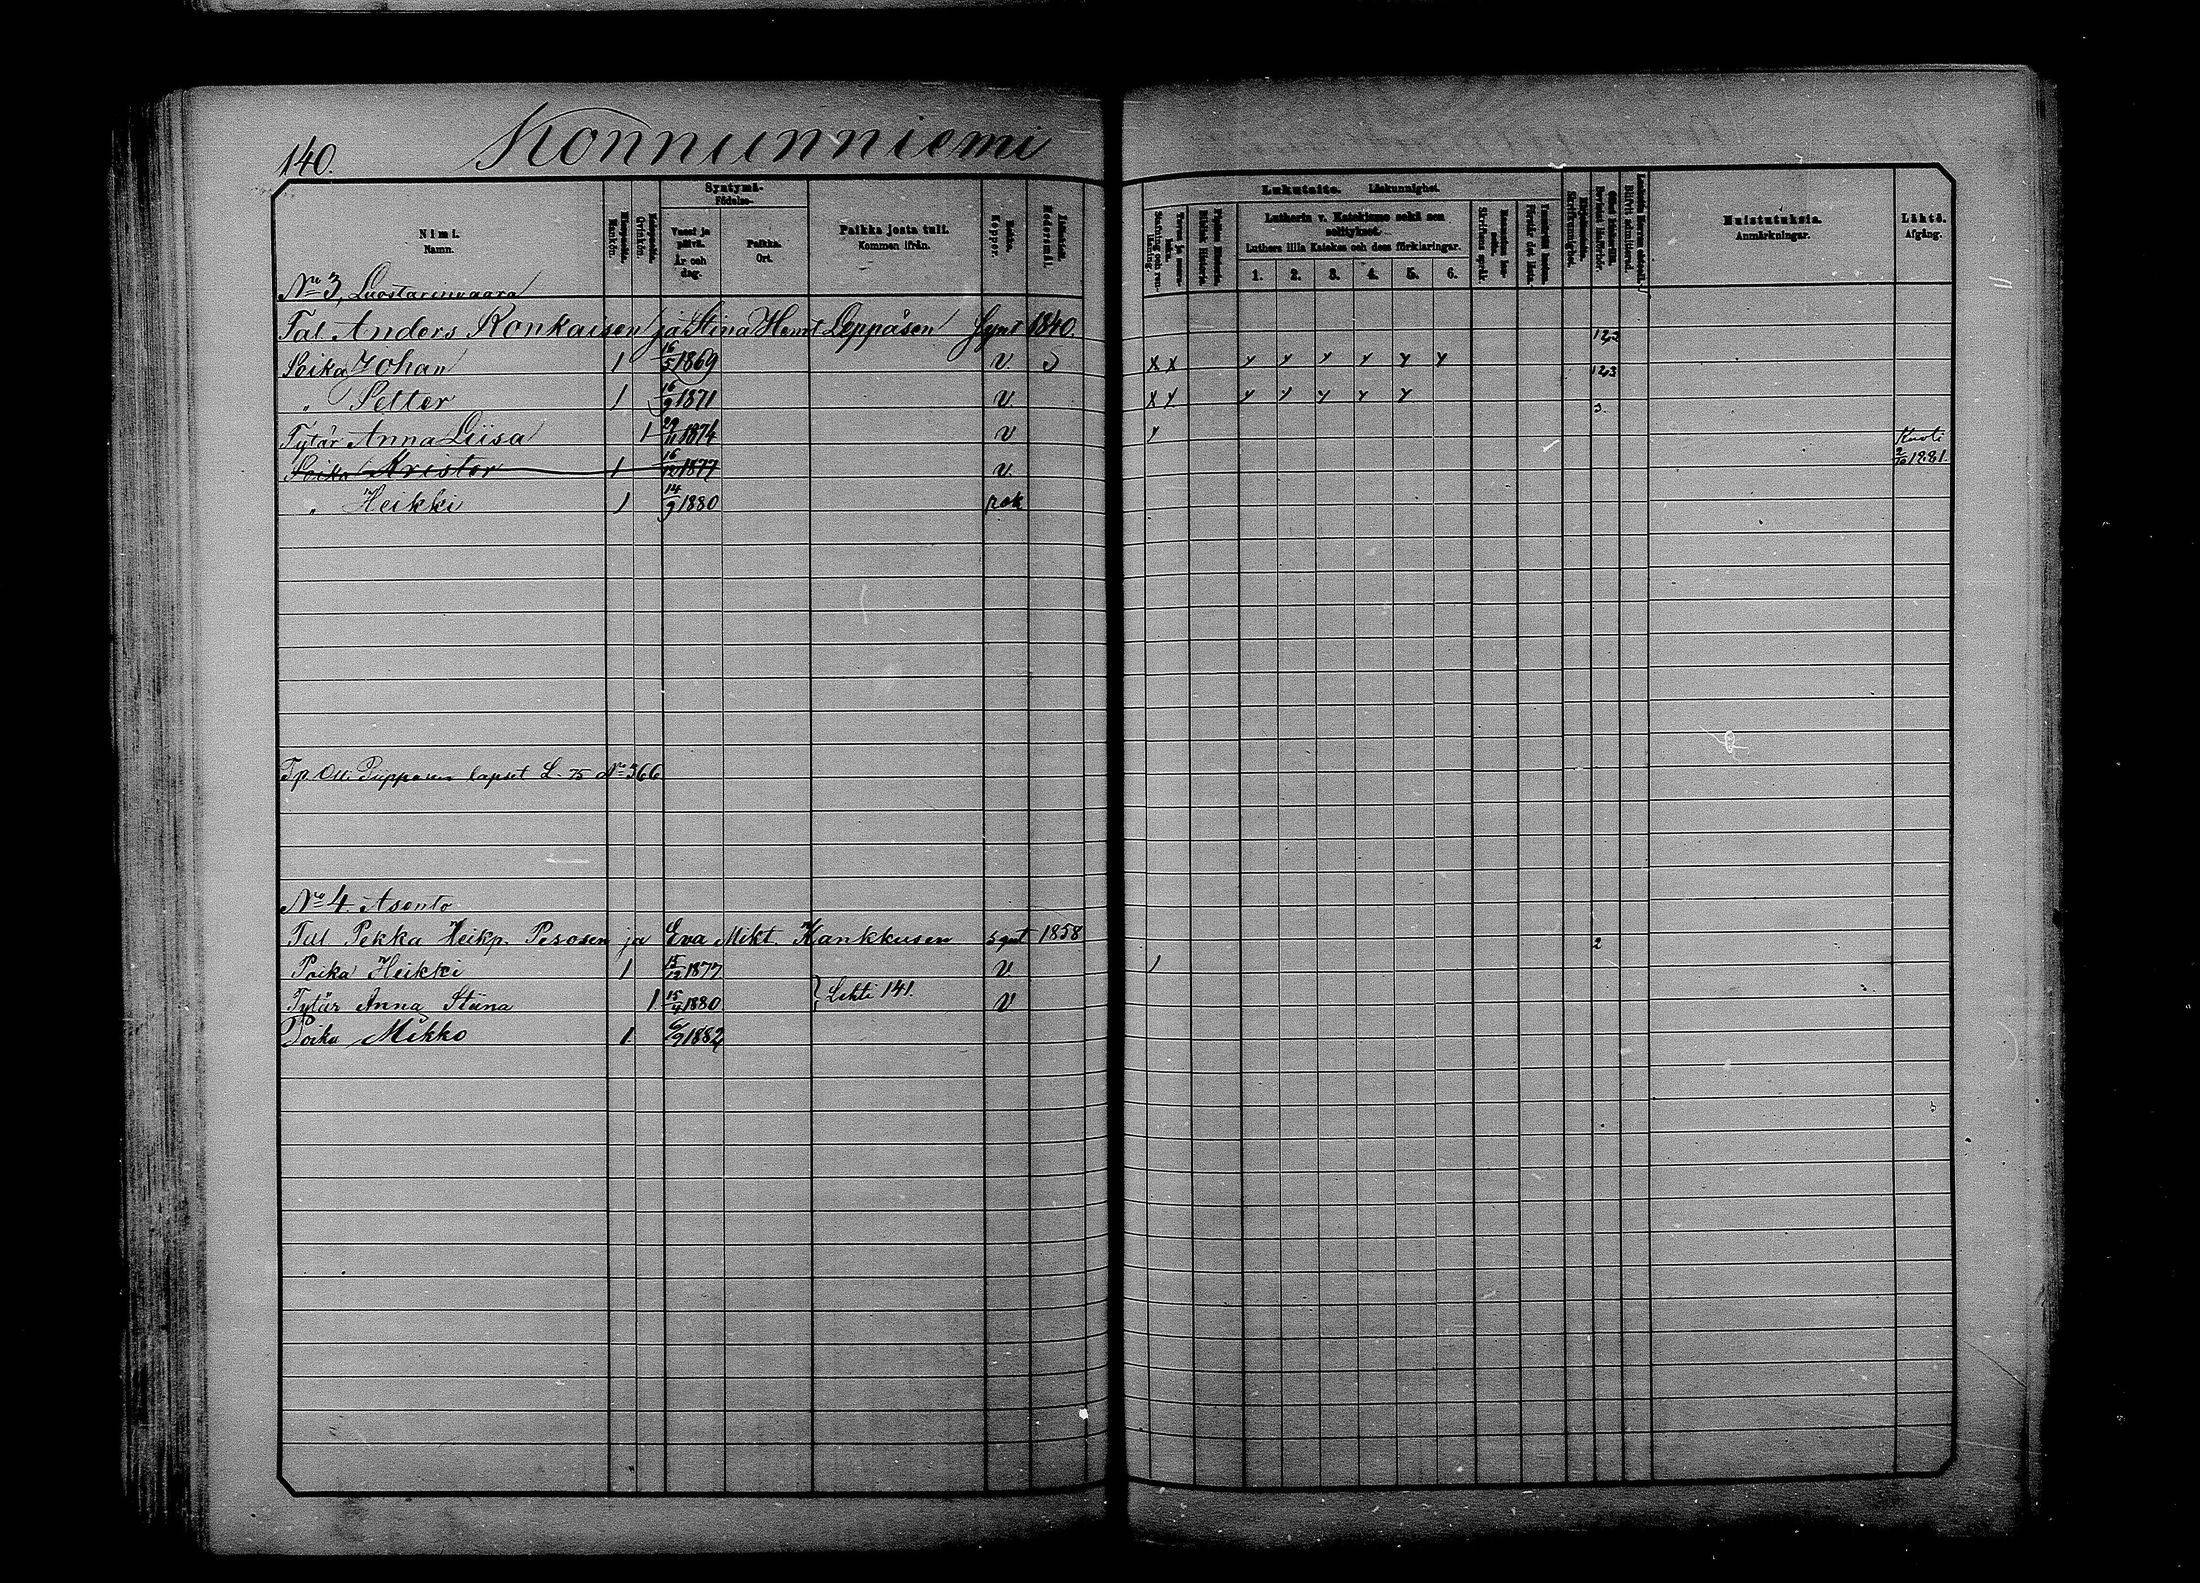 140.
Konnunniemi
Nimi.
Namn.
Miespuolia.
Mankön.
Naispuolia.
Qvinkön.
Syntymä-
Födelse-
Vuosi ja päivä.
År och dag.
Paikka.
Ort.
Paikka josta tuli.
Kommen ifrån.
Rokko.
Koppor.
Äitinkieli.
Modersmål.
Lukutaito. Läskunnighet.
Lutherin v. Katekismo sekä sen selitykset.
Luthers lilla Katekes och dess förklaringar.
1. 2. 3. 4. 5. 6.
Muistutuksia.
Anmärkningar.
Lähtö.
Afgång.
No 3, Luostarinvaara
Tal. Anders Ronkaisen ja Stina Henr. Leppäsen synt 1840.
Poika Johan 1 16/5 1869 v. S x x y y y y y y 1,2,2
" Petter 1 16/9 1871 v. x x y y y y y 1,2,3
Tytär Anna Liisa 1 29/11 1874 v y 3.
Poika Kristor 1 16/12 1877 v. Kuoli 2/10 1881
" Heikki 1 14/9 1880 rok
Tp. Olli Pupposen lapset L. 75 No 366
No 4. Asento
Tal Pekka Heikp. Pesosen ja Eva Mikt. Kankkusen synt 1858
Poika Heikki 1 15/12 1877 V. 2
Tytär Anna Stiina 1 15/4 1880 } Lehti 141. V
Poika Mikko 1. 6/9 1882